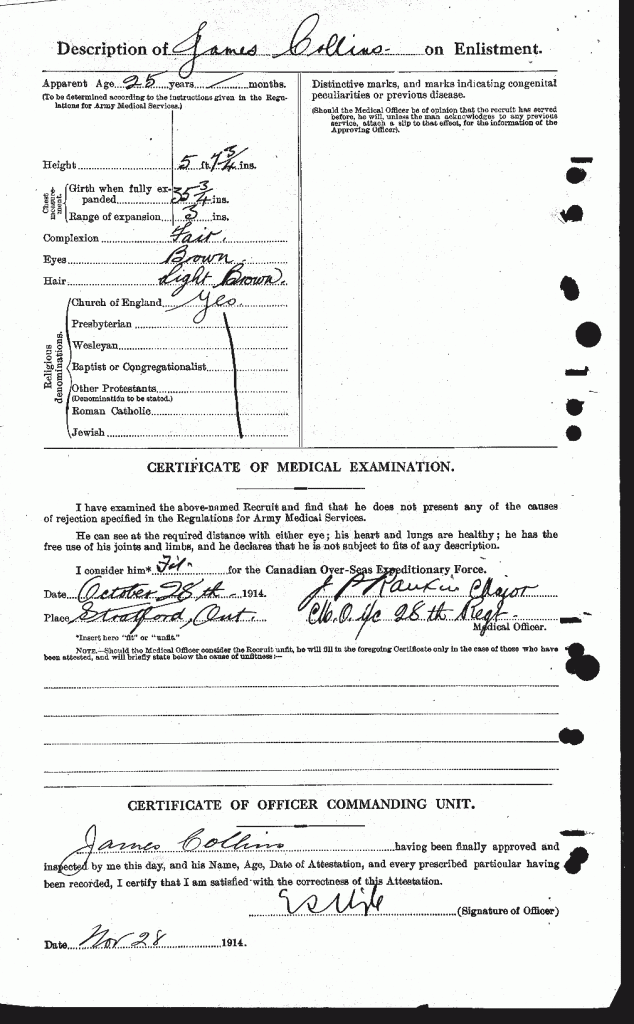 Description of James Collins on Enlistment.
Apparent Age 25 years / months.
(To be determined according to the instructions given in the Regulations for Army Medical Services.)
Height 5 ft. 7 3/4 ins.
Chest measurement.
Girth when fully expanded 35 3/4 ins.
Range of expansion 3 ins.
Complexion Fair.
Eyes Brown.
Hair Light Brown.
Religious denominations.
Church of England Yes
Presbyterian
Wesleyan
Baptist or Congregationalist
Other Protestants
(Denomination to be stated.)
Roman Catholic
Jewish
Distinctive marks, and marks indicating congenital
peculiarities or previous disease.
(Should the Medical Officer be of opinion that the recruit has served
before, he will, unless the man acknowledges to any previous
service, attach a slip to that effect, for the information of the
Approving Officer).
CERTIFICATE OF MEDICAL EXAMINATION.
I have examined the above-named Recruit and find that he does not present any of the causes
of rejection specified in the Regulations for Army Medical Services.
He can see at the required distance with either eye; his heart and lungs are healthy; he has the
free use of his joints and limbs, and he declares that he is not subject to fits of any description.
I consider him* Fit for the Canadian Over-Seas Expeditionary Force.
Date October 28th 1914.
J P Rankin Major
Place Stratford, Ont.
M.O. i/c 28th Regt
Medical Officer.
*Insert here "fit" or "unfit."
NOTE.—Should the Medical Officer consider the Recruit unfit, he will fill in the foregoing Certificate only in the case of those who have
been attested, and will briefly state below the cause of unfitness:—
CERTIFICATE OF OFFICER COMMANDING UNIT.
James Collins having been finally approved and
inspected by me this day, and his Name, Age, Date of Attestation, and every prescribed particular having
been recorded, I certify that I am satisfied with the correctness of this Attestation.
(Signature of Officer)
Date Nov 28 1914.